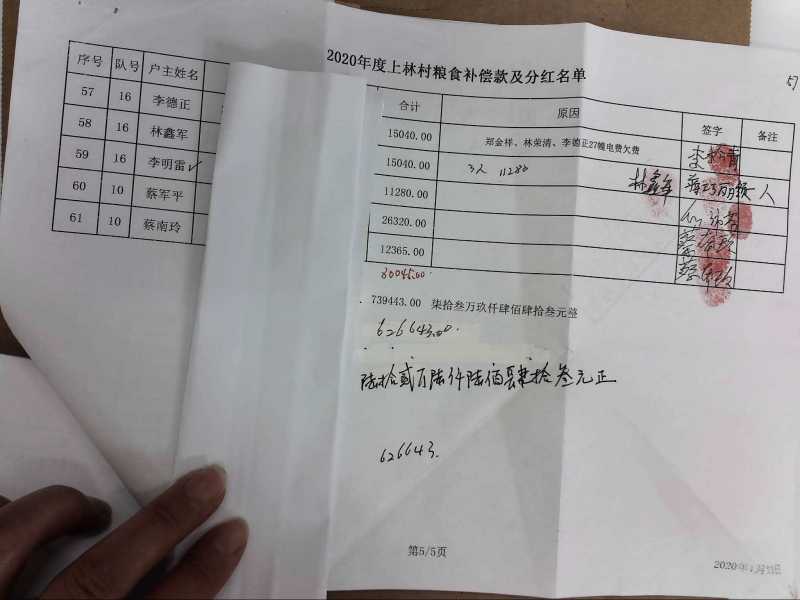 2020年度上林村粮食补偿款及分红名单
57
序号 队号 户主姓名 合计 原因 签字 备注
57 16 李德正 15040.00 郑金祥、林荣清、李德正27幢电费欠费
58 16 林鑫军 15040.00 3人 11280 林鑫军
59 16 李明雷✓ 11280.00
60 10 蔡军平 26320.00
61 10 蔡南玲 12365.00
80045.00
739443.00 柒拾叁万玖仟肆佰肆拾叁元整
626643.00.
陆拾贰万陆仟陆佰肆拾叁元正
626643.
第5/5页